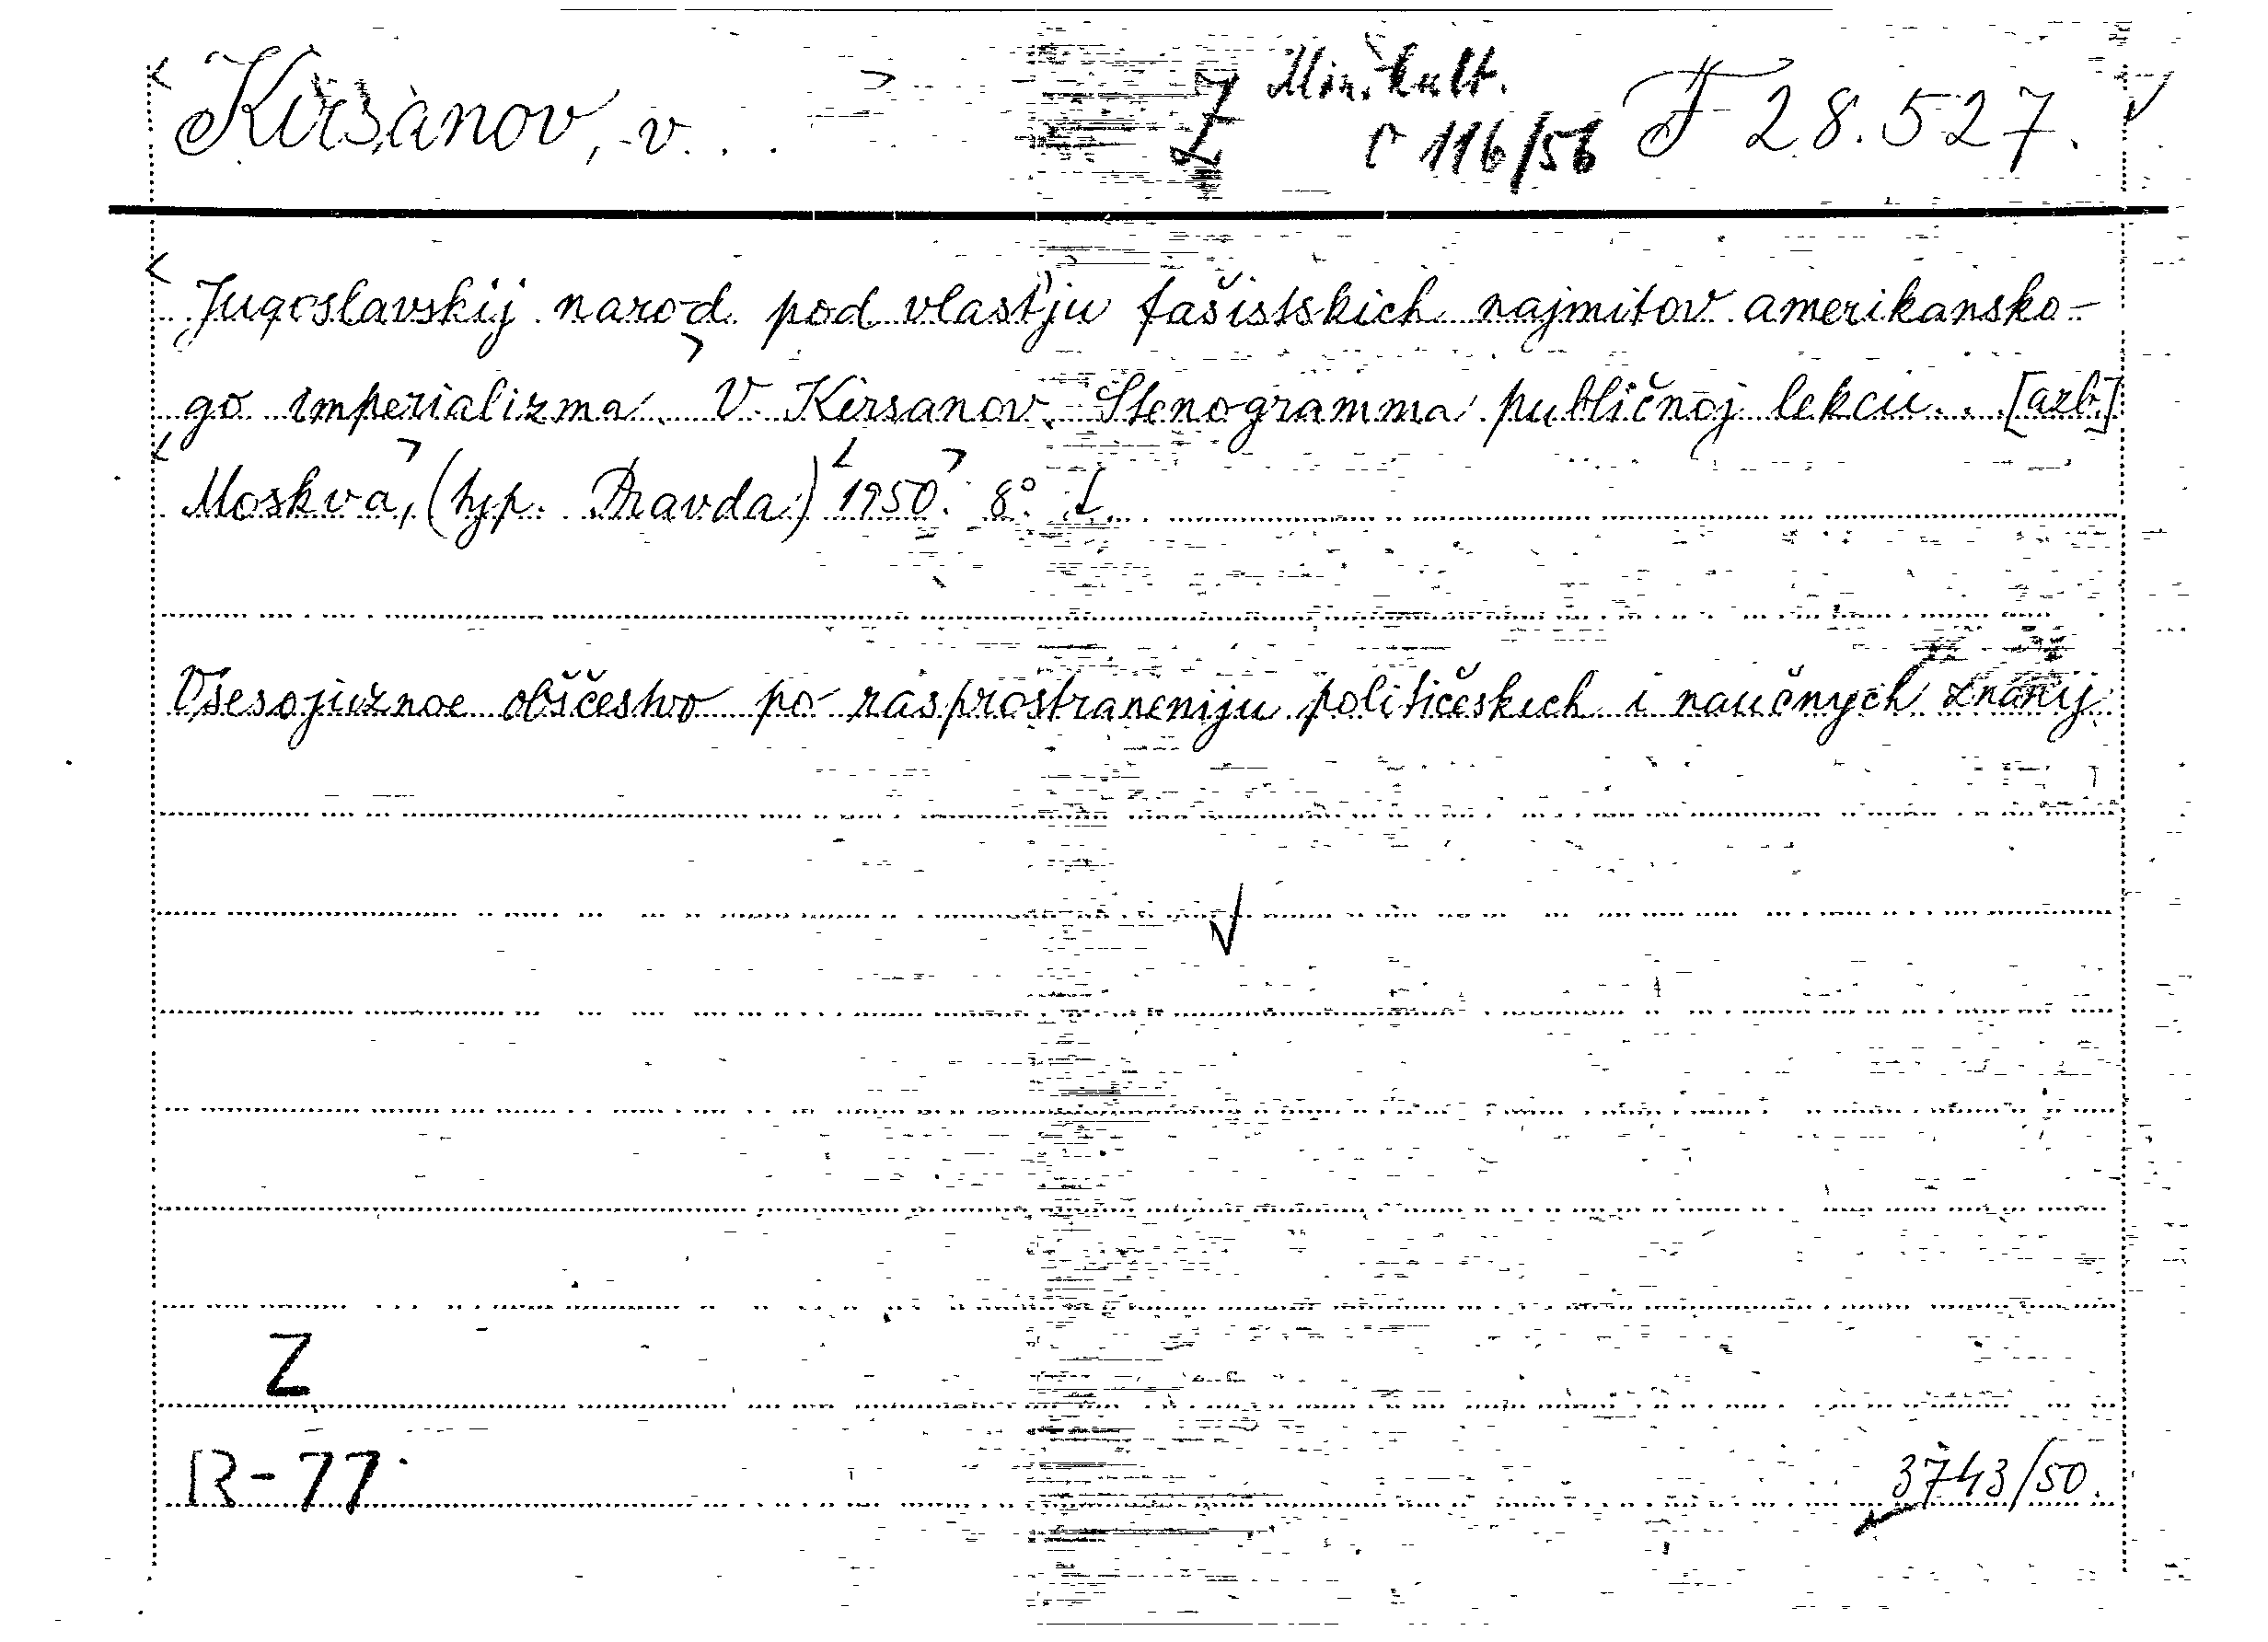 Kirsanov, v...
Z Min. kult.
č 116/56
F 28.527.
Jugoslavskij narod pod vlast'ju fašistskich najmitov amerikansko-
go imperializma. V. Kirsanov. Stenogramma publičnoj lekcii... [azb.]
Moskva, (typ. Pravda) 1950. 8°.
Vsesojuznoe obščestvo po rasprostraneniju političeskich i naučnych znanij.
Z
R-77.
3743/50.